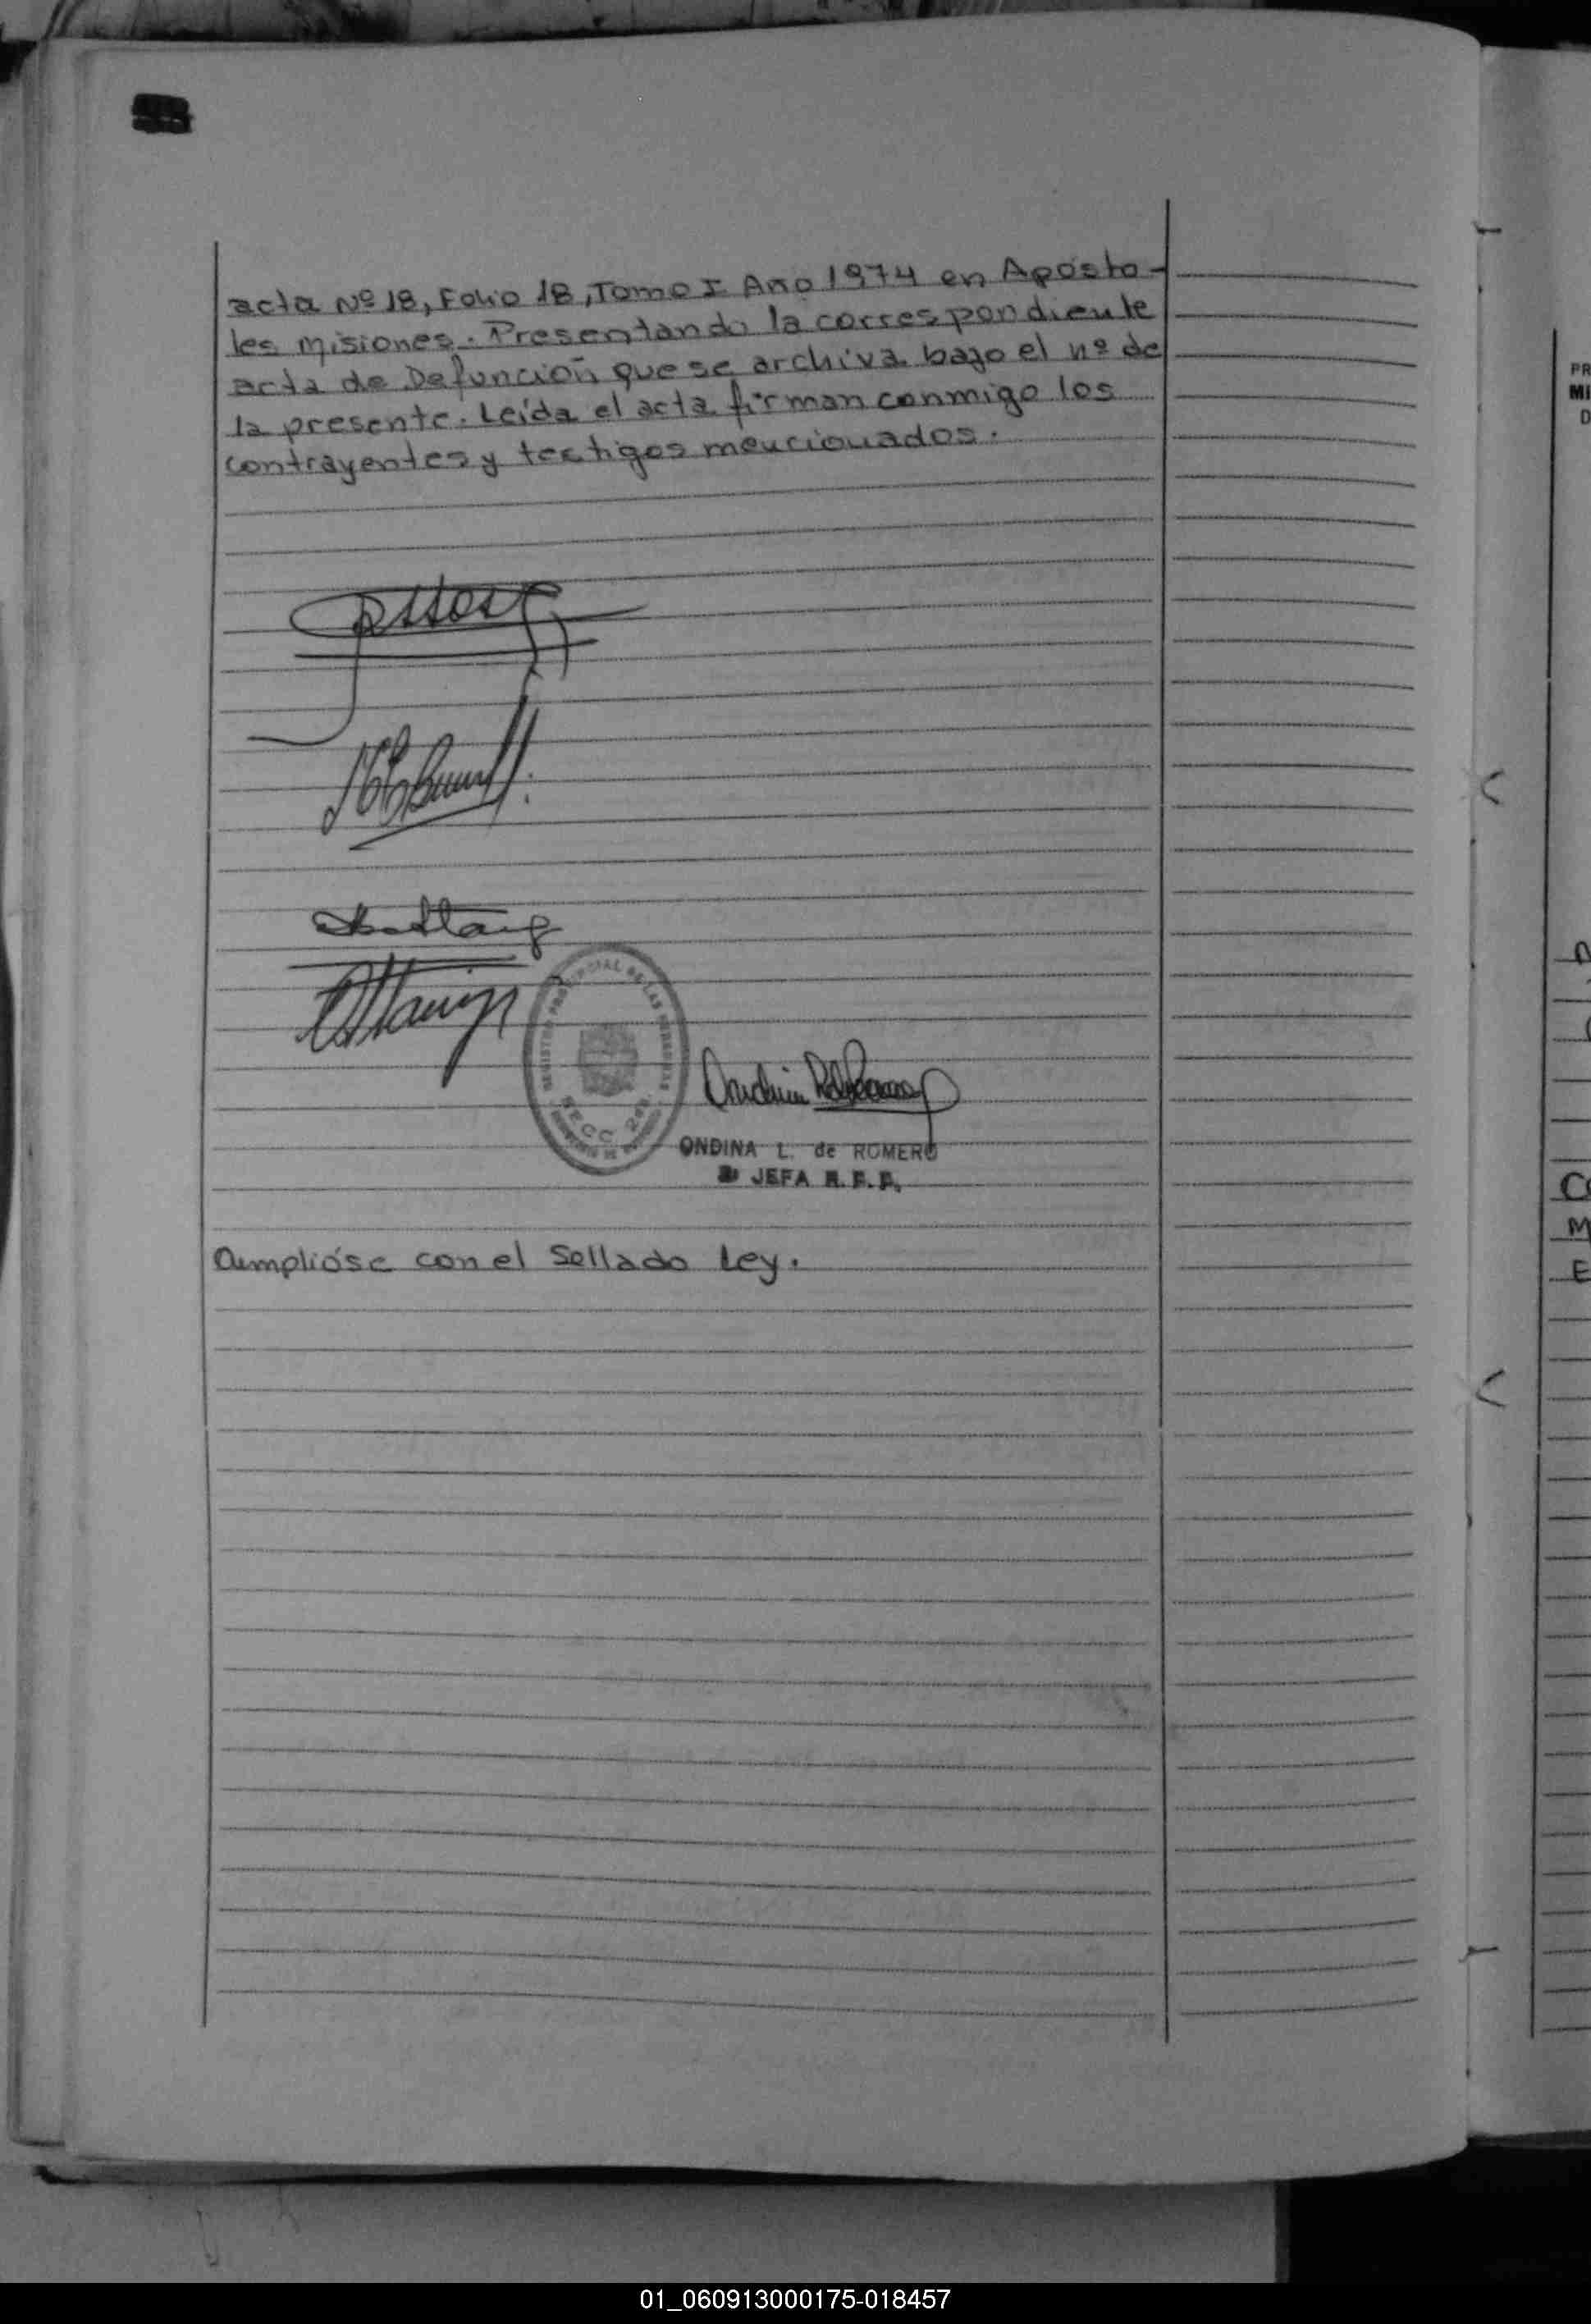 acta Nº 18, Folio 18, Tomo I Año 1974 en Aposto-
les Misiones. Presentando la correspondiente
acta de Defunción que se archiva bajo el nº de
la presente. Leída el acta firman conmigo los
contrayentes y testigos mencionados.
REGISTRO PROVINCIAL DE LAS PERSONAS
SECC 2da.
ONDINA L. de ROMERO
JEFA
Cumplióse con el Sellado Ley.
PR
MI
D
C
M
E
01_060913000175-018457